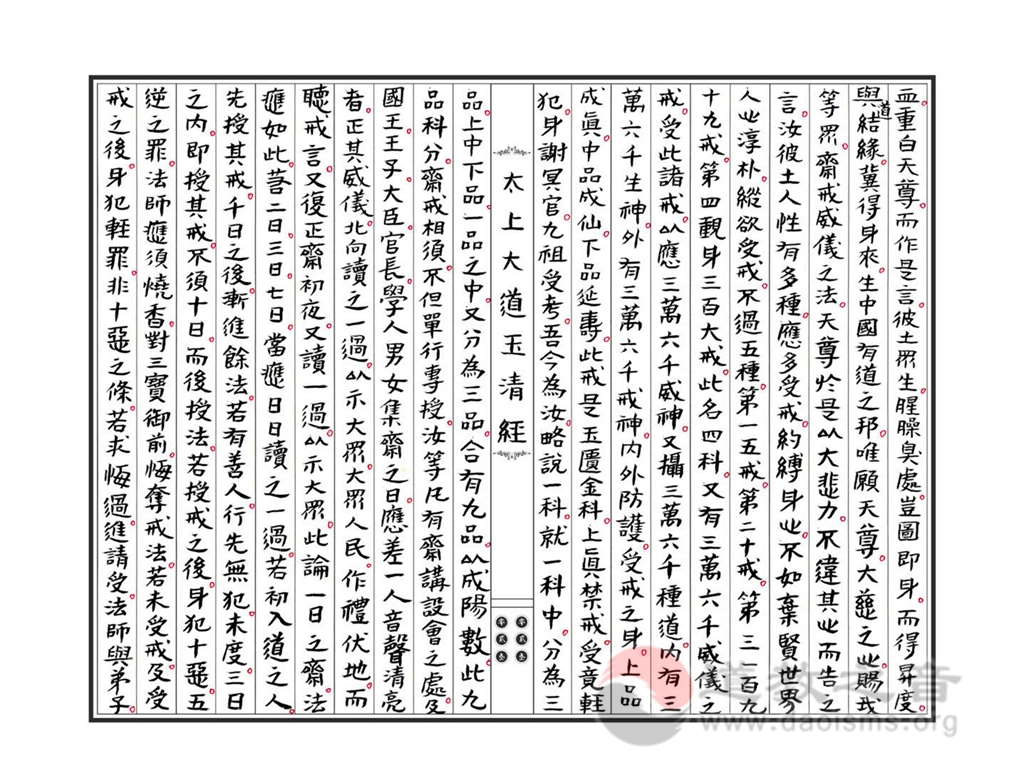 血重白天尊而作是言彼土眾生腥臊臭處豈圖即身而得昇度
與道結緣冀得身來生中國有道之邦唯願天尊大慈之心賜我
等眾齋戒威儀之法天尊於是以大悲力不違其心而告之
言汝彼土人性有多種應多受戒約縛身心不如棄賢世界
人心淳朴縱欲受戒不過五種第一五戒第二十戒第三一百九
十九戒第四觀身三百大戒此名四科又有三萬六千威儀之
戒受此諸戒以應三萬六千威神又攝三萬六千種道內有三
萬六千生神外有三萬六千戒神內外防護受戒之身上品
成真中品成仙下品延壽此戒是玉匱金科上真禁戒受竟輕
犯身謝冥官九祖受考吾今為汝略說一科就一科中分為三
太上大道玉清經
零貳叁
零貳叁
品上中下品一品之中又分為三品合有九品以成陽數此九
品科分齋戒相須不但單行專授汝等凡有齋講設會之處及
國王王子大臣官長學人男女集齋之日應差一人音聲清亮
者正其威儀北向讀之一過以示大眾大眾人民作禮伏地而
聽戒言又復正齋初夜又讀一過以示大眾此論一日之齋法
應如此若二日三日七日當應日日讀之一過若初入道之人
先授其戒千日之後漸進餘法若有善人行先無犯未度三日
之內即授其戒不須十日而後授法若授戒之後身犯十惡五
逆之罪法師應須燒香對三寶御前悔奪戒法若未受戒及受
戒之後身犯輕罪非十惡之條若求悔過進請受法師與弟子
道教之音
www.daoisms.org